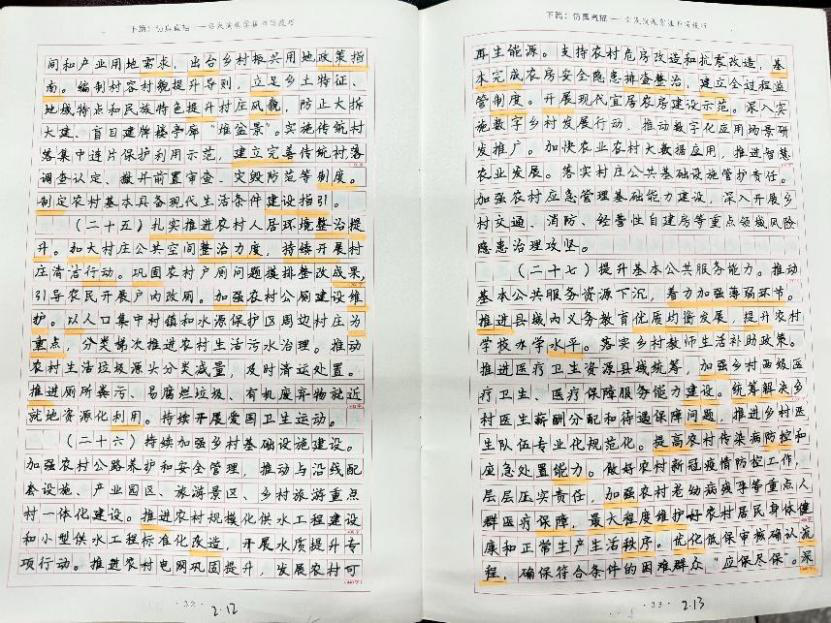 间和产业用地需求，出台乡村振兴用地政策指
南。编制村容村貌提升导则，立足乡土特征、
地域特点和民族特色提升村庄风貌，防止大拆
大建、盲目建牌楼亭廊“堆盆景”。实施传统村
落集中连片保护利用示范，建立完善传统村落
调查认定、撤并前置审查、灾毁防范等制度。
制定农村基本具备现代生活条件建设指引。
（二十五）扎实推进农村人居环境整治提
升。和大村庄公共空间整治力度，持续开展村
庄清洁行动。巩固农村户厕问题摸排整改成果，
引导农民开展户内改厕。加强农村公厕建设维
护。以人口集中村镇和水源保护区周边村庄为
重点，分类梯次推进农村生活污水治理。推动
农村生活垃圾源头分类减量，及时清运处置。
推进厕所粪污、易腐烂垃圾、有机废弃物就近
就地资源化利用。持续开展爱国卫生运动。
（二十六）持续加强乡村基础设施建设。
加强农村公路养护和安全管理，推动与沿线配
套设施、产业园区、旅游景区、乡村旅游重点
村一体化建设。推进农村规模化供水工程建设
和小型供水工程标准化改造，开展水质提升专
项行动。推进农村电网巩固提升，发展农村可
2.12
再生能源。支持农村危房改造和抗震改造，基
本完成农房安全隐患排查整治，建立全过程监
管制度。开展现代宜居农房建设示范。深入实
施数字乡村发展行动，推动数字化应用场景研
发推广。加快农业农村大数据应用，推进智慧
农业发展。落实村庄公共基础设施管护责任。
加强农村应急管理基础能力建设，深入开展乡
村交通、消防、经营性自建房等重点领域风险
隐患治理攻坚。
（二十七）提升基本公共服务能力。推动
基本公共服务资源下沉，着力加强薄弱环节。
推进县域内义务教育优质均衡发展，提升农村
学校办学水平。落实乡村教师生活补助政策。
推进医疗卫生资源县域统筹，加强乡村两级医
疗卫生、医疗保障服务能力建设。统筹解决乡
村医生薪酬分配和待遇保障问题，推进乡村医
生队伍专业化规范化。提高农村传染病防控和
应急处置能力。做好农村新冠疫情防控工作，
层层压实责任，加强农村老幼病残孕等重点人
群医疗保障，最大程度维护好农村居民身体健
康和正常生产生活秩序。优化低保审核确认流
程，确保符合条件的困难群众“应保尽保”。深
33
2.13